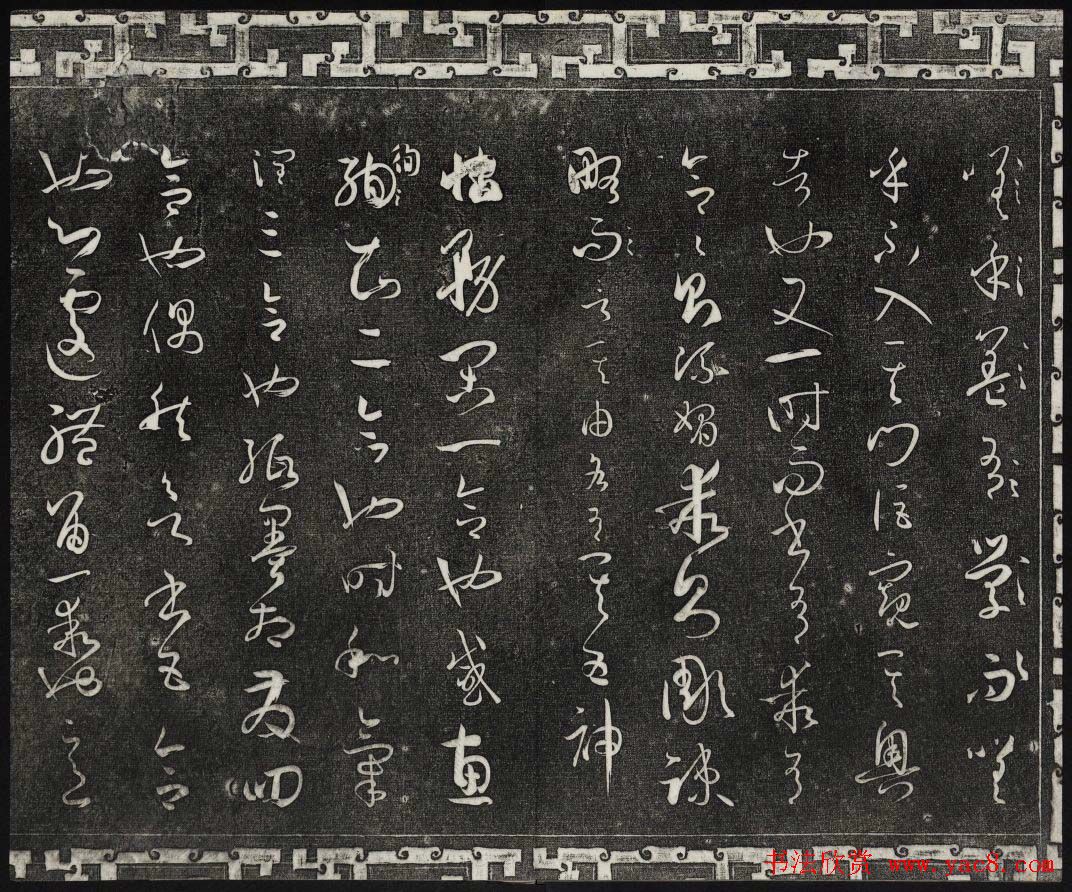 嗟
乎不入其門詎窺其奧
者也又一時而書有乖有
合合則流媚乖則彫疎
略而言其由各有其五神
怡務閑一合也感惠
徇徇知二合也時和氣
潤三合也紙墨相發四
合也偶然欲書五合
也心遽體留一乖也意
书法欣赏 www.yac8.com